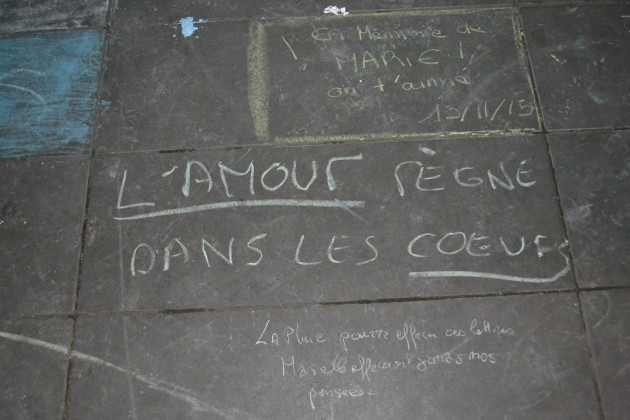 En Mémoire de
MARIE !
on t'aime
13/11/15
L'AMOUR RÈGNE
DANS LES COEURS
La Pluie pourra effacer ces lettres
Mais elle effacera jamais nos
pensées